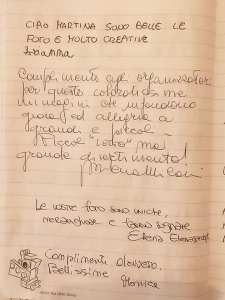 CIAO MARTINA SONO BELLE LE
FOTO E MOLTO CREATIVE
Complimenti agli organizzatori
per queste coloratissime
immagini che infondono
gioia ed allegria a
grandi e piccoli
Piccolo ma
grande divertimento!
Le vostre foto sono uniche,
meravigliose e fanno sognare
Complimenti davvero
Bellissime
Monica